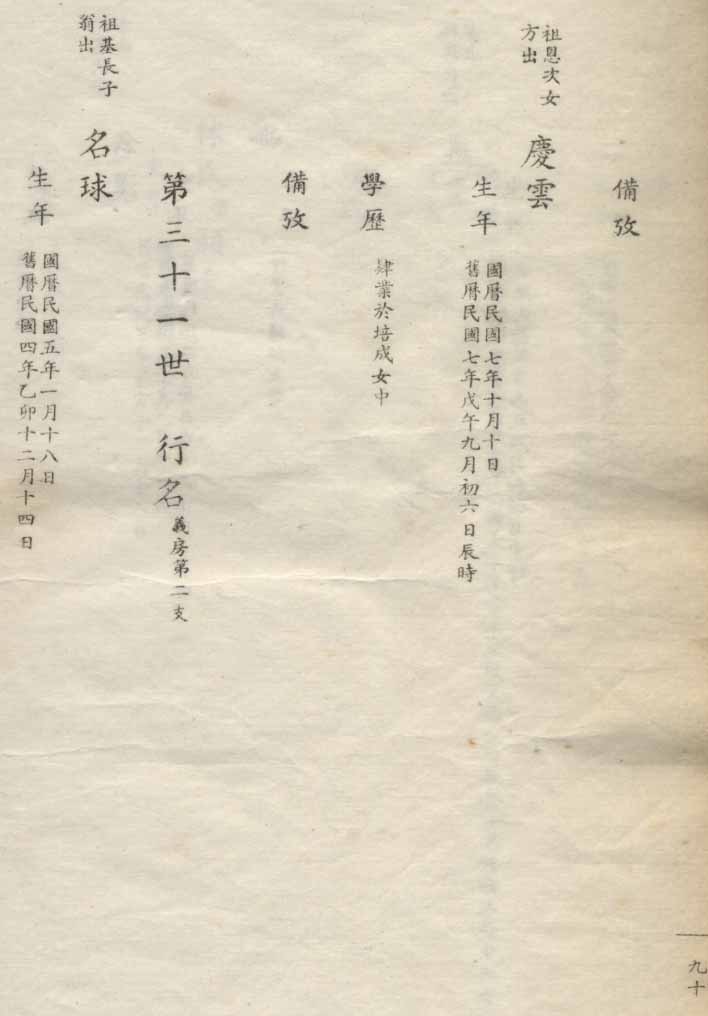 備攷
祖恩次女
方出
慶雲
生年
國曆民國七年十月十日
舊曆民國七年戊午九月初六日辰時
學歷
肄業於培成女中
備攷
第三十一世 行名 義房第二支
祖基長子
翁出
名球
生年
國曆民國五年一月十八日
舊曆民國四年乙卯十二月十四日
九十